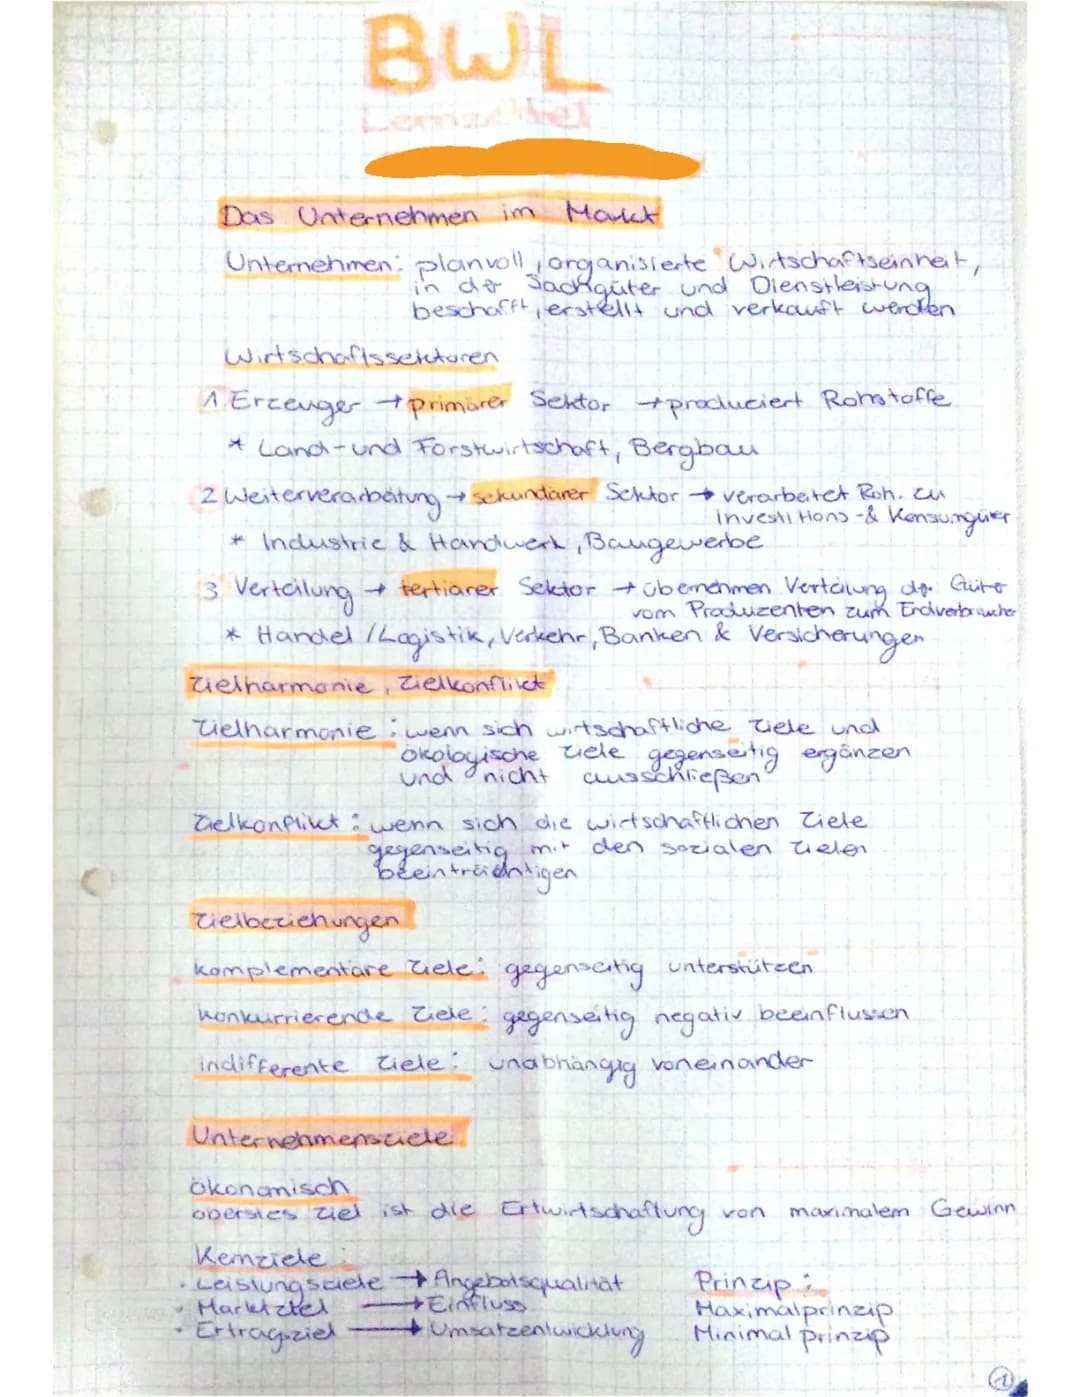 BWL
Lernzettel
Das Unternehmen im Markt
Unternehmen: planvoll, organisierte Wirtschaftseinheit,
in der Sachgüter und Dienstleistung
beschafft, erstellt und verkauft werden
Wirtschaftssektoren
1. Erzeuger → primärer Sektor → produciert Rohstoffe
* Land- und Forstwirtschaft, Bergbau
2 Weiterverarbeitung → sekundärer Sektor → verarbeitet Roh. zu
Investitions -& Konsumgüter
* Industrie & Handwerk, Baugewerbe
3 Verteilung → tertiärer Sektor → übernehmen Verteilung der Güter
vom Produzenten zum Endverbraucher
* Handel / Logistik, Verkehr, Banken & Versicherungen
Zielharmonie, Zielkonflikt
Zielharmonie: wenn sich wirtschaftliche Ziele und
ökologische Ziele gegenseitig ergänzen
und nicht ausschließen
Zielkonflikt: wenn sich die wirtschaftlichen Ziele
gegenseitig mit den sozialen Zielen
beeinträchtigen
Zielbeziehungen
komplementäre Ziele: gegenseitig unterstützen
konkurrierende Ziele: gegenseitig negativ beeinflussen
indifferente Ziele: unabhängig voneinander
Unternehmensziele
ökonomisch
oberstes Ziel ist die Ertwirtschaftung von maximalem Gewinn
Kernziele:
· Leistungsziele → Angebotsqualität
· Marktziel → Einfluss
· Ertragsziel → Umsatzentwicklung
Prinzip:
Maximalprinzip
Minimalprinzip
1